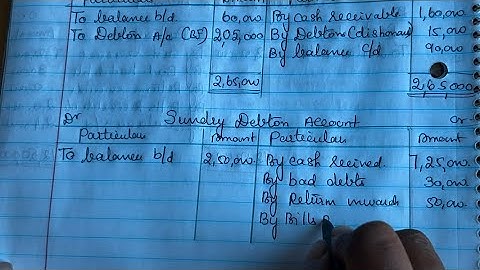 To balance b/d 60,000 By cash receivable 1,60,000
To Debtors A/c (BF) 2,05,000 By Debtors (dishonour) 15,000
By balance c/d 90,000
2,65,000 2,65,000
Dr Sundry Debtors Account Cr
Particulars Amount Particulars Amount
To balance b/d 2,50,000 By cash received 7,25,000
By bad debts 30,000
By Return inwards 50,000
By Bills